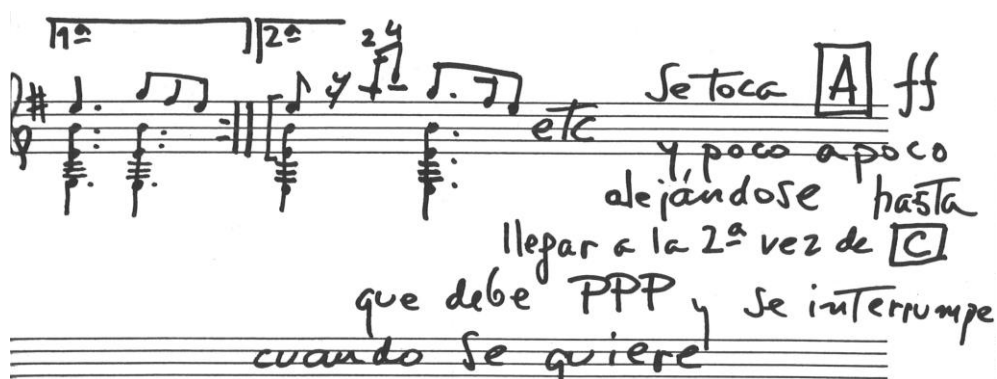 1ª 2ª
2 4
Se toca A ff
etc
y poco a poco
alejándose hasta
llegar a la 2ª vez de C
que debe PPP y se interrumpe
cuando se quiere